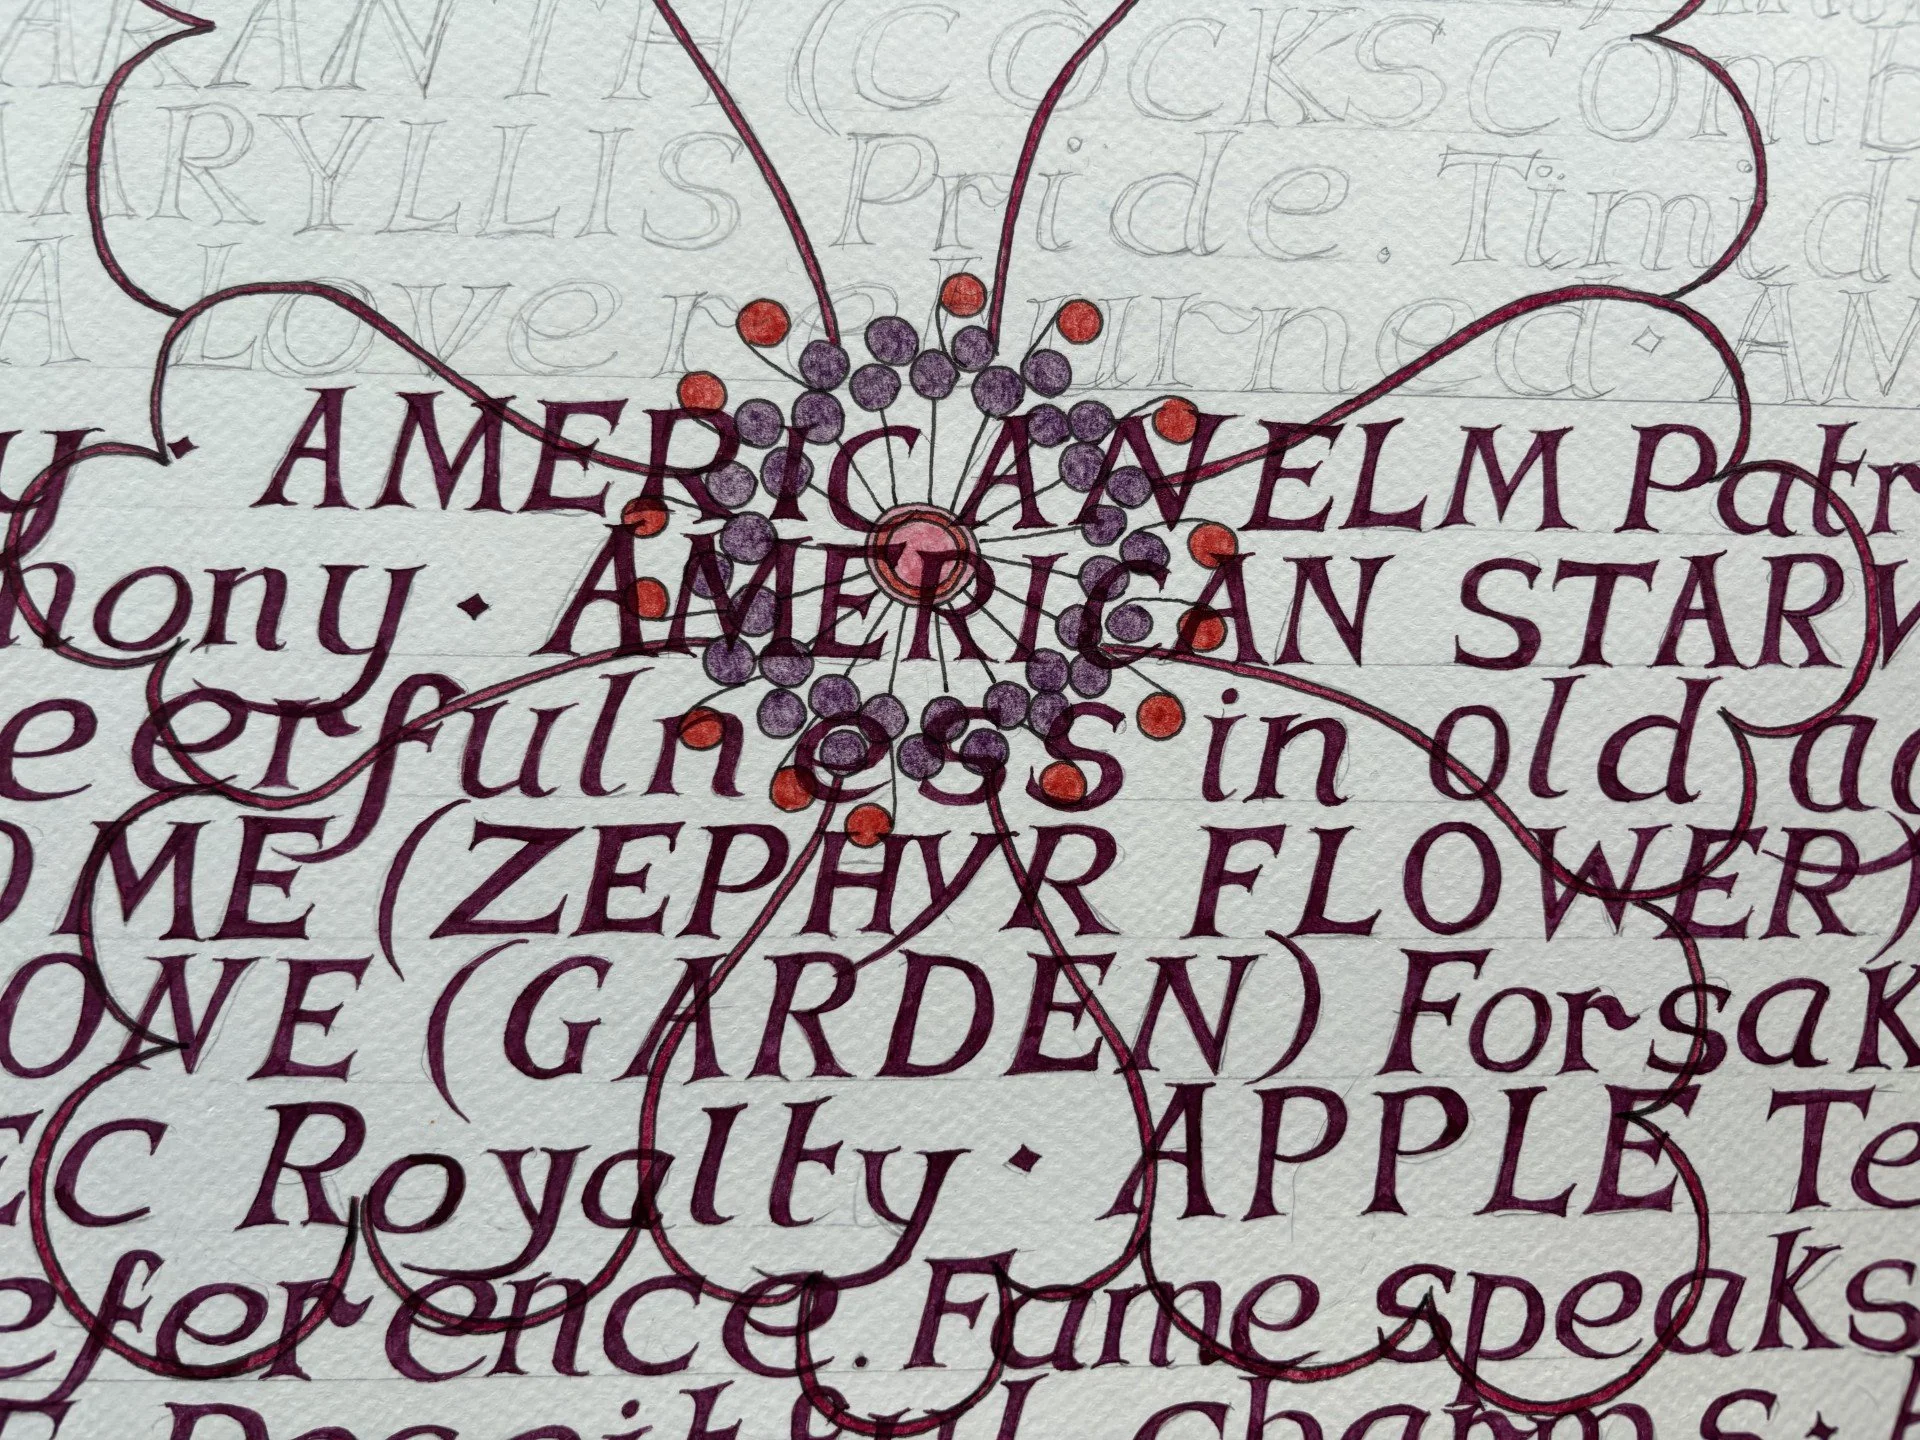 ARANTH (COCKSCOmb
ARYLLIS Pride. Timid
A Love returned · AM
y · AMERICAN ELM Patr
hony · AMERICAN STARW
eerfulness in old ag
OME (ZEPHYR FLOWER)
ONE (GARDEN) Forsak
EC Royalty · APPLE Te
eference. Fame speaks
Deceitful charms ·